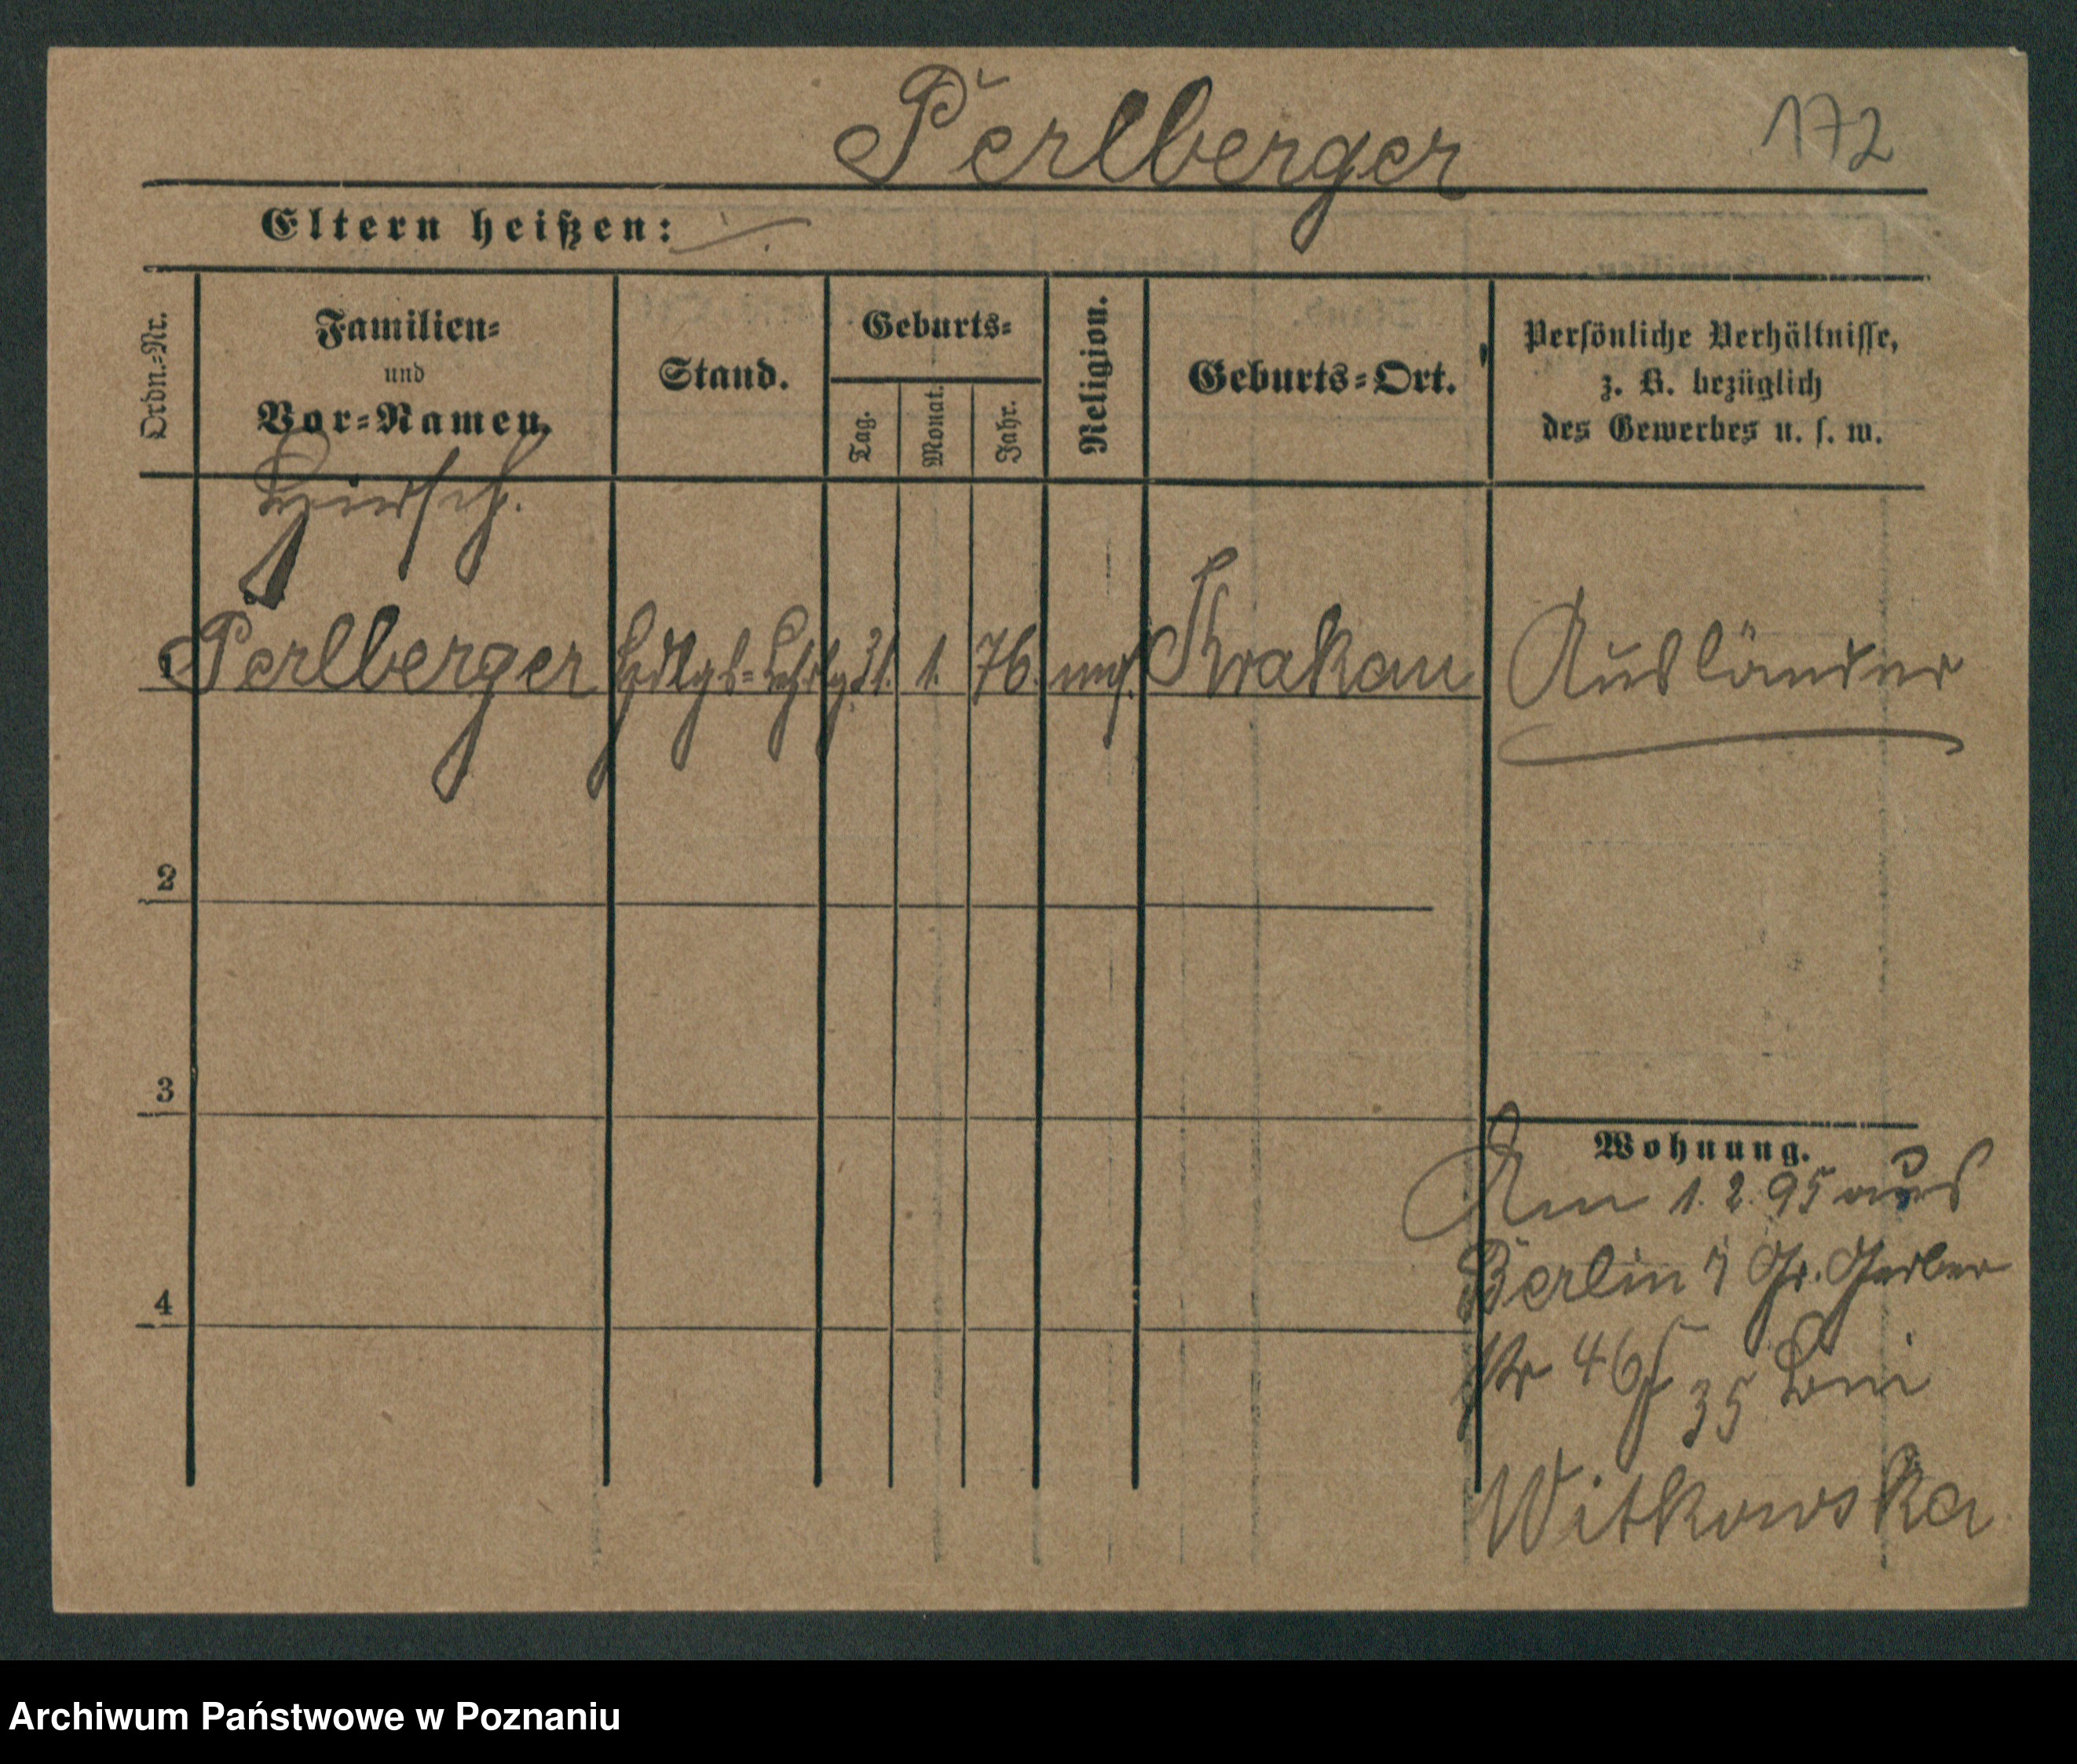 Perlberger
172
Eltern heißen: ./.
Ordn.-Nr.
Familien-
und
Vor-Namen.
Stand.
Geburts-
Tag.
Monat.
Jahr.
Religion.
Geburts-Ort.
Persönliche Verhältnisse,
z. B. bezüglich
des Gewerbes u. s. w.
Hirsch.
1 Perlberger Hdlgs-Lehrlg. 31. 1. 76. mos. Krakau Ausländer
2
3
4
Wohnung.
Am 1. 2. 95 aus
Berlin Gr. Gerber
str 46 35 bei
Witkowska
Archiwum Państwowe w Poznaniu